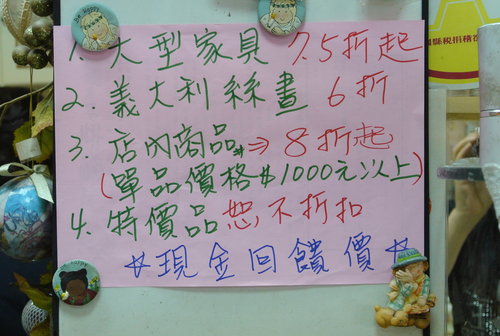 1. 大型家具 7.5折起
2. 義大利絲畫 6折
3. 店內商品 ⇒ 8折起
(單品價格$1000元以上)
4. 特價品恕不折扣
*現金回饋價*